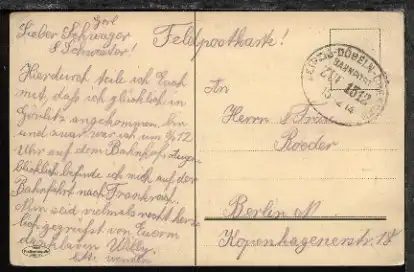 Görl
Lieber Schwager
& Schwester!
Hierdurch teile ich Euch
mit, daß ich glücklich in
Görlitz angekommen bin
und zwar war ich um 1/2 12
Uhr auf dem Bahnhof. Augen-
blicklich befinde ich mich auf der
Bahnfahrt nach
seid vielmals recht herz-
lich gegrüßt von Eurem
Willy
btt. wenden
Feldpostkarte!
An
Herrn
Roeder
Berlin N
Kopenhagenerstr. 18
LEIPZIG-DÖBELN-
BAHNPOST
ZUG 1812
14